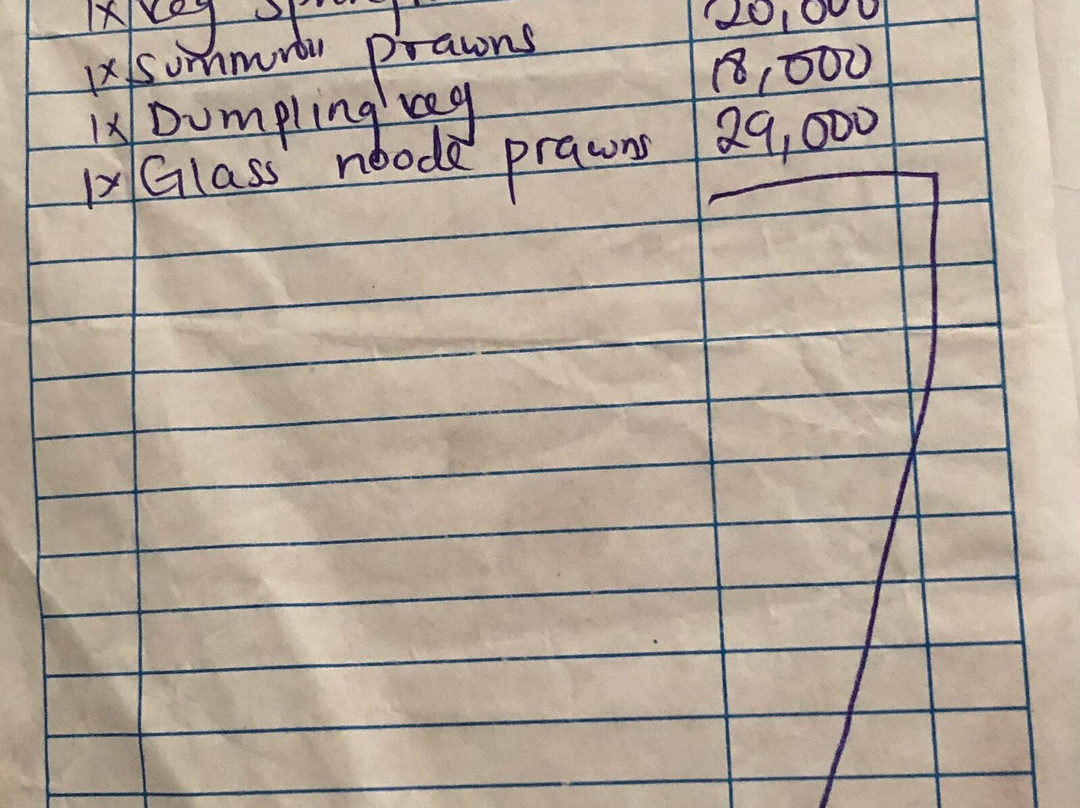 1x Veg Spring 20,000
1x Summer prawns 18,000
1x Dumpling veg 29,000
1x Glass noode prawns